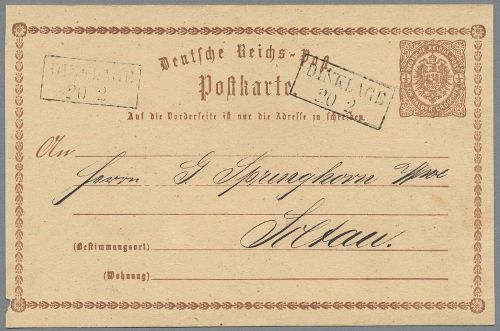 Deutsche Reichs-Post
DINKLAGE
20 2
DINKLAGE
20 2
Postkarte
Auf die Vorderseite ist nur die Adresse zu schreiben.
An
Herrn G. Springhorn
Soltau.
(Bestimmungsort)
(Wohnung)